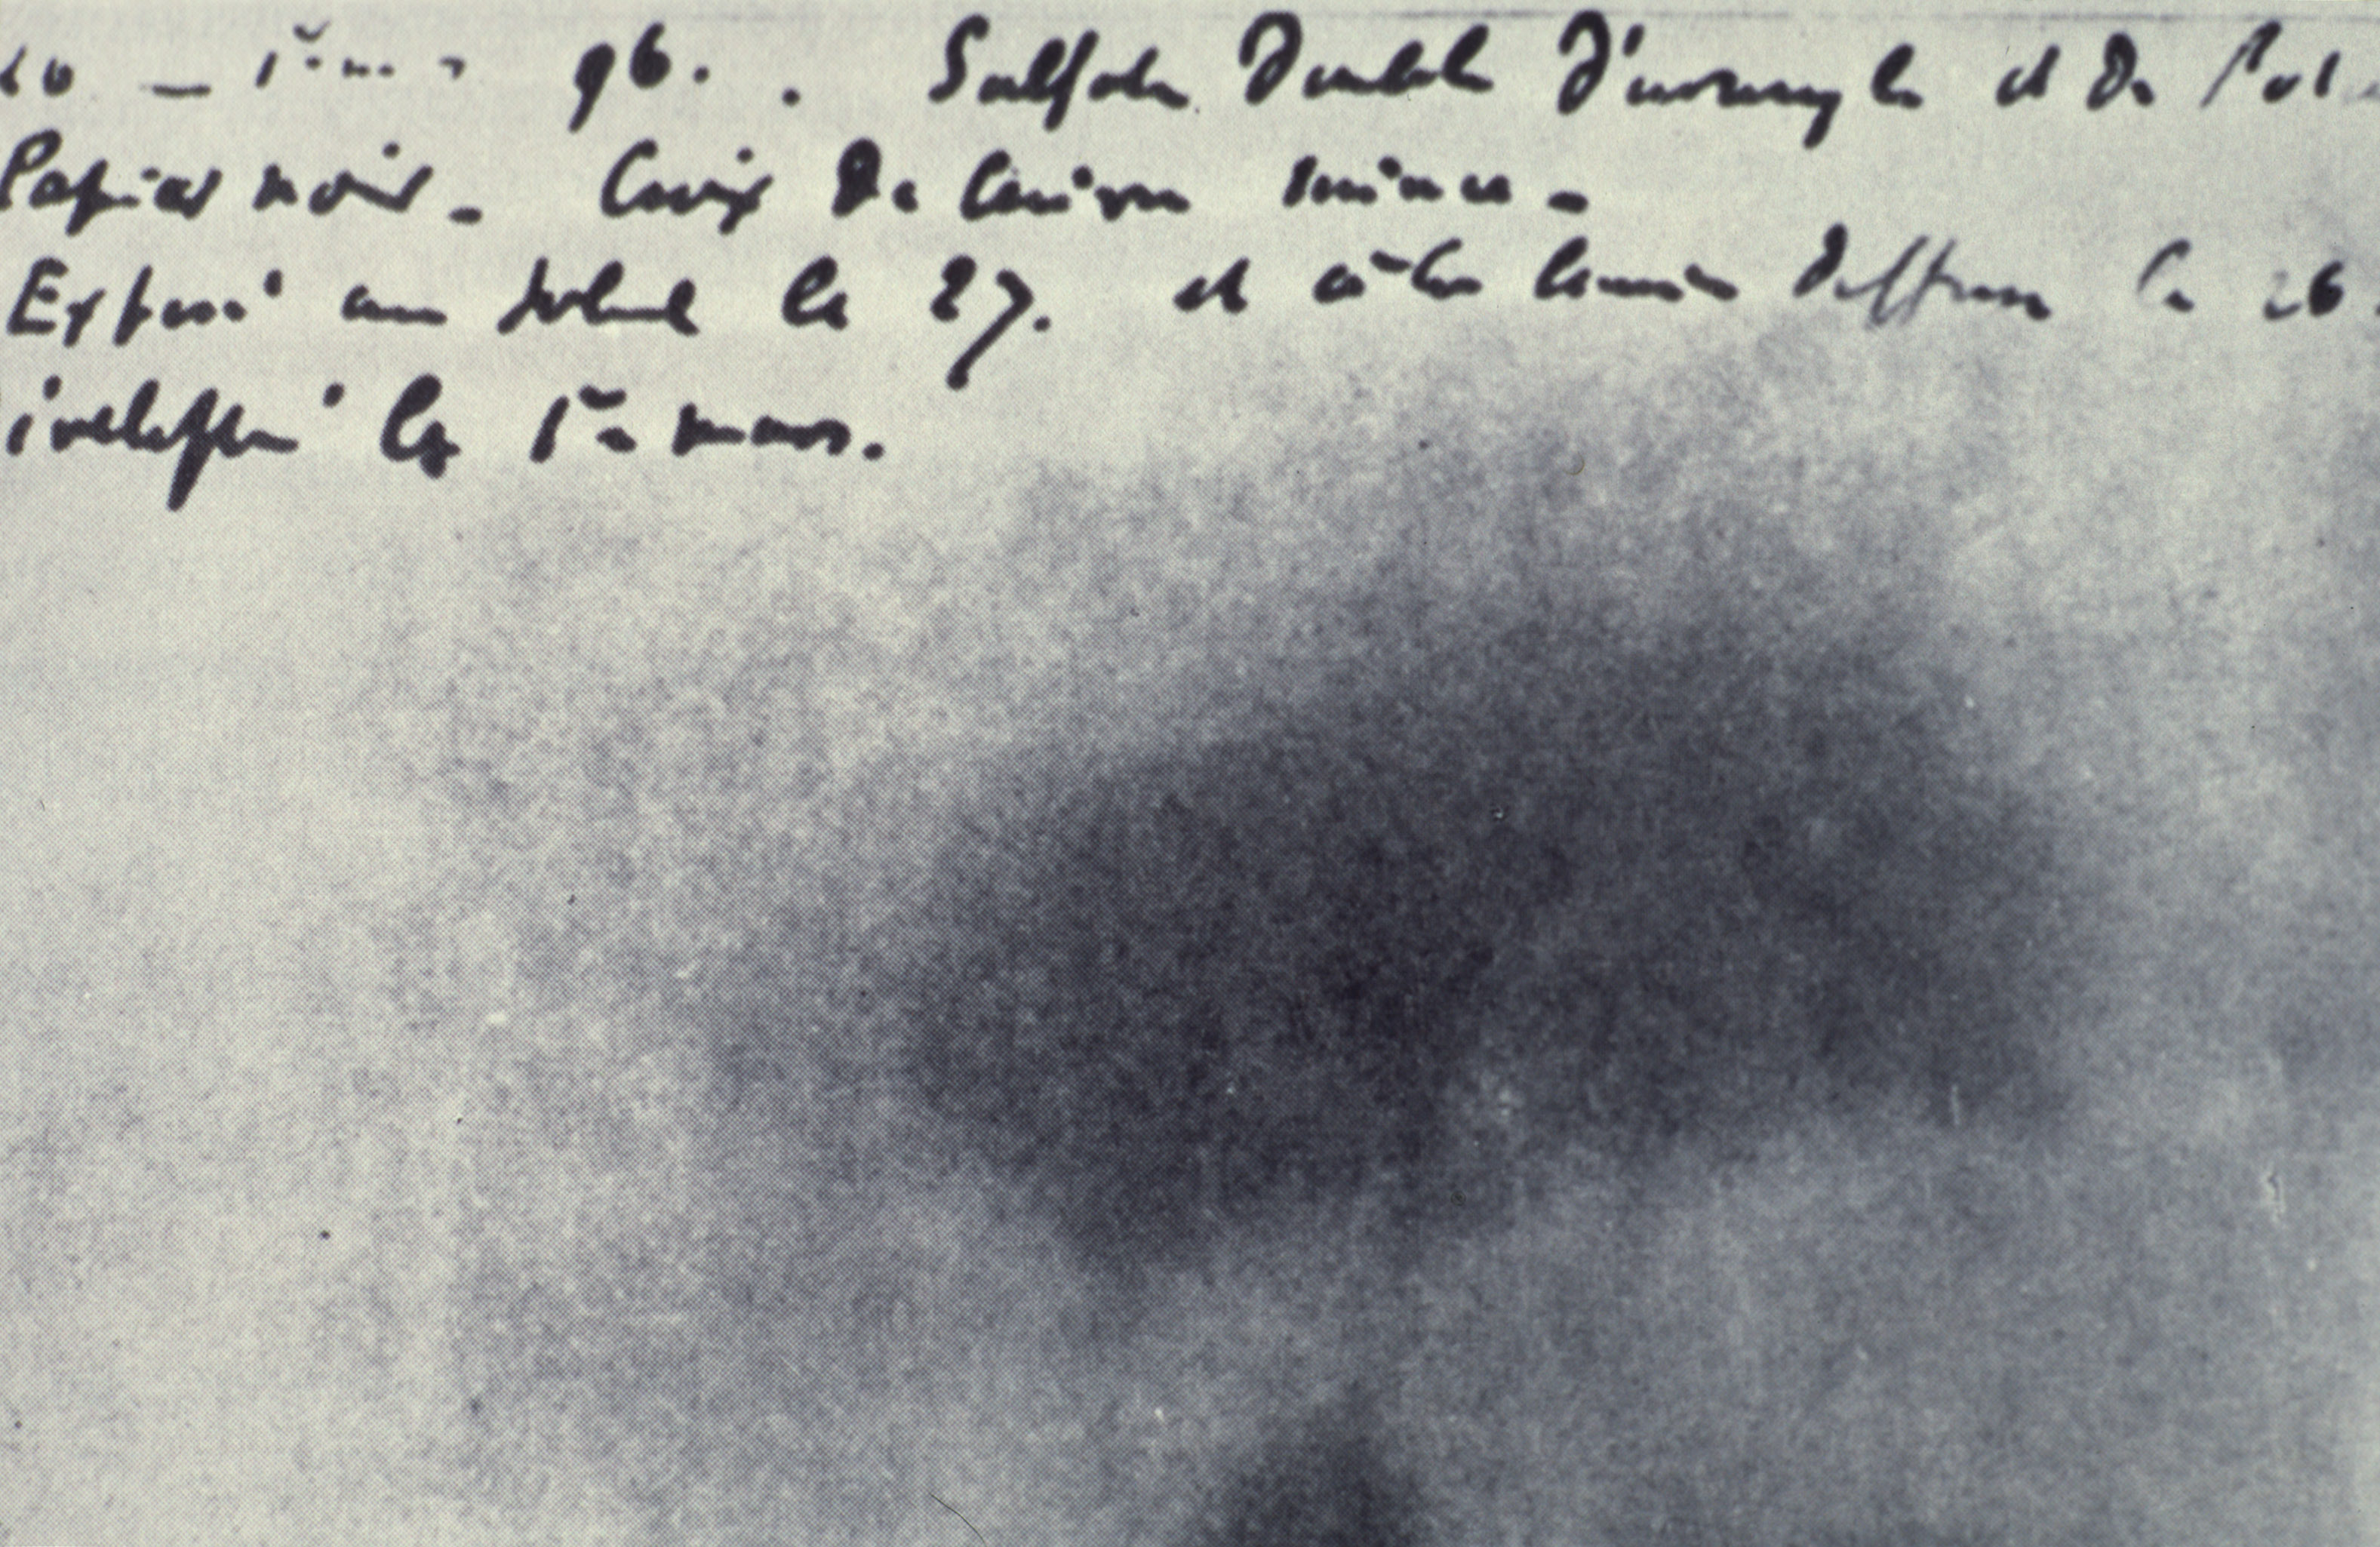 96. Sulfate Double d'uranyle et de
Papier noir - Croix de Cuivre mince -
Exposé au soleil le 27. et à la lumière diffuse le 26.
Développé le 1er mars.